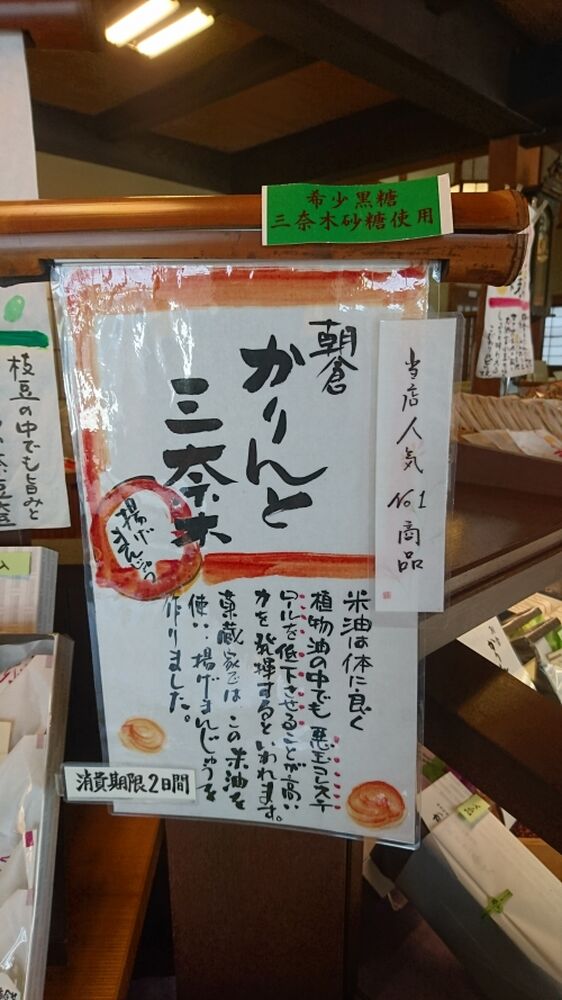 希少黒糖
三奈木砂糖使用
朝倉
かりんと
三奈木
揚げ
まんじゅう
当店人気 No1 商品
米油は体に良く
植物油の中でも 悪玉コレステ
ロールを低下させることが高い
力を発揮するといわれます。
菓蔵家では この米油を
使い、揚げまんじゅうを
作りました。
消費期限2日間
枝豆の中でも旨みと